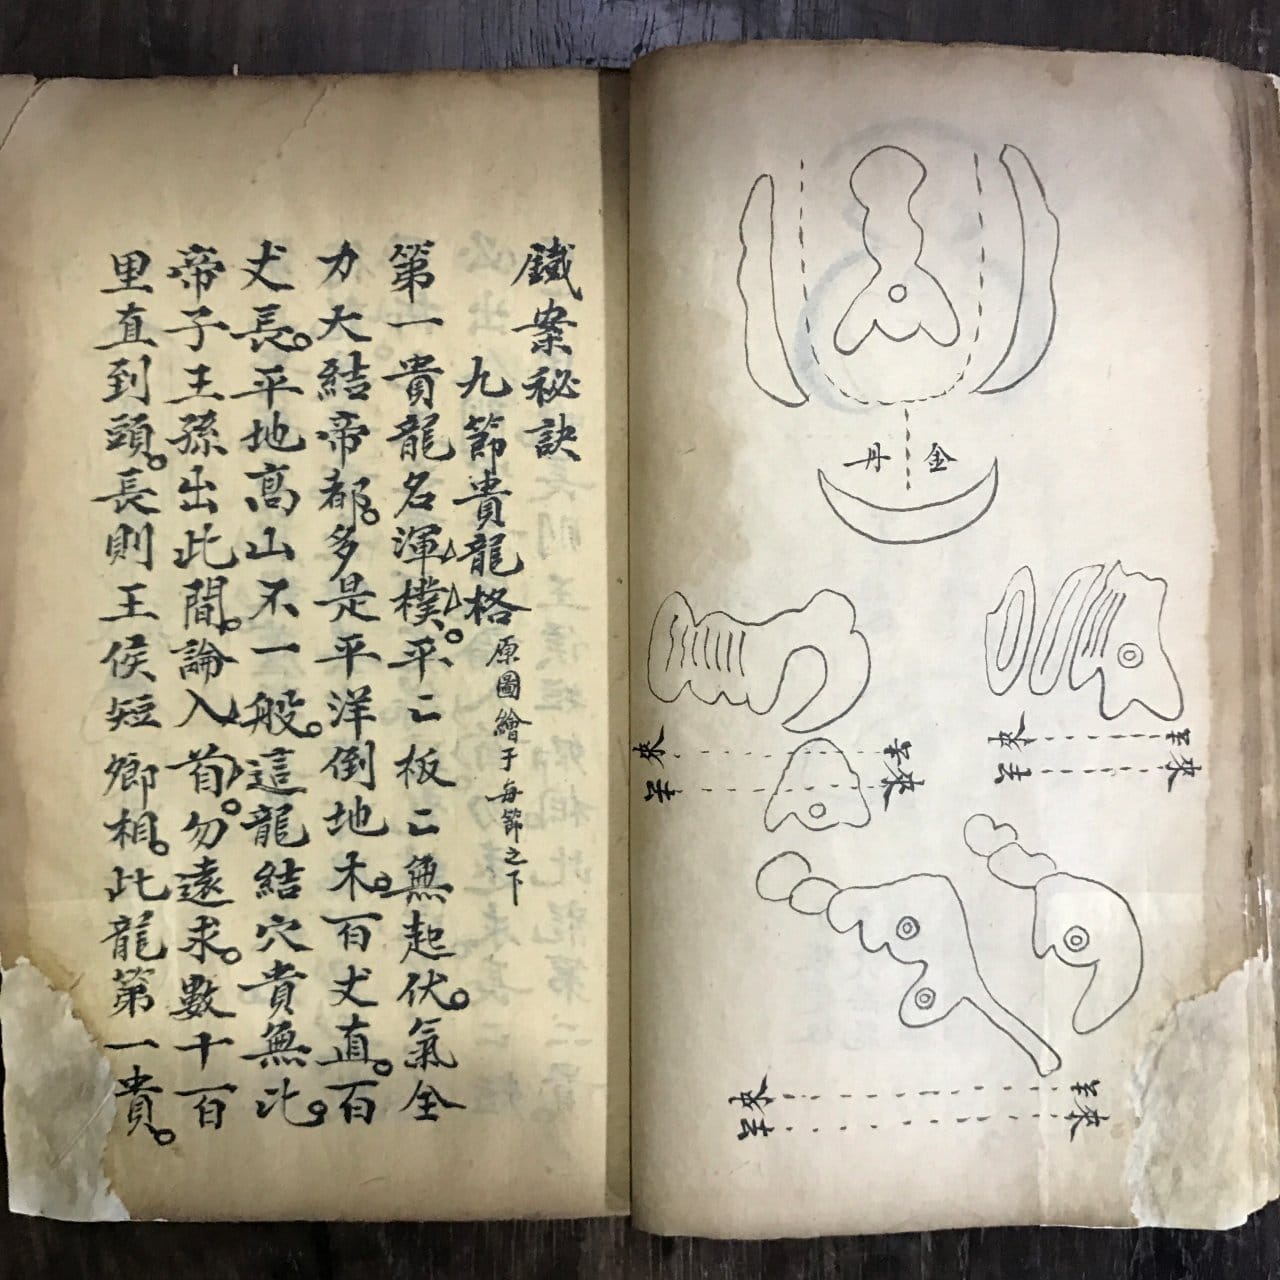 金丹
去來
來去
去來
來去
去來
來去
鐵案秘訣
九節貴龍格 原圖繪于每節之下
第一貴龍名渾樸。平〻板〻無起伏。氣全
力大結帝都。多是平洋倒地木。百丈直。百
丈長。平地高山不一般。這龍結穴貴無比。
帝子王孫出此間。論入首。勿遠求。數十百
里直到頭。長則王侯短卿相。此龍第一貴。